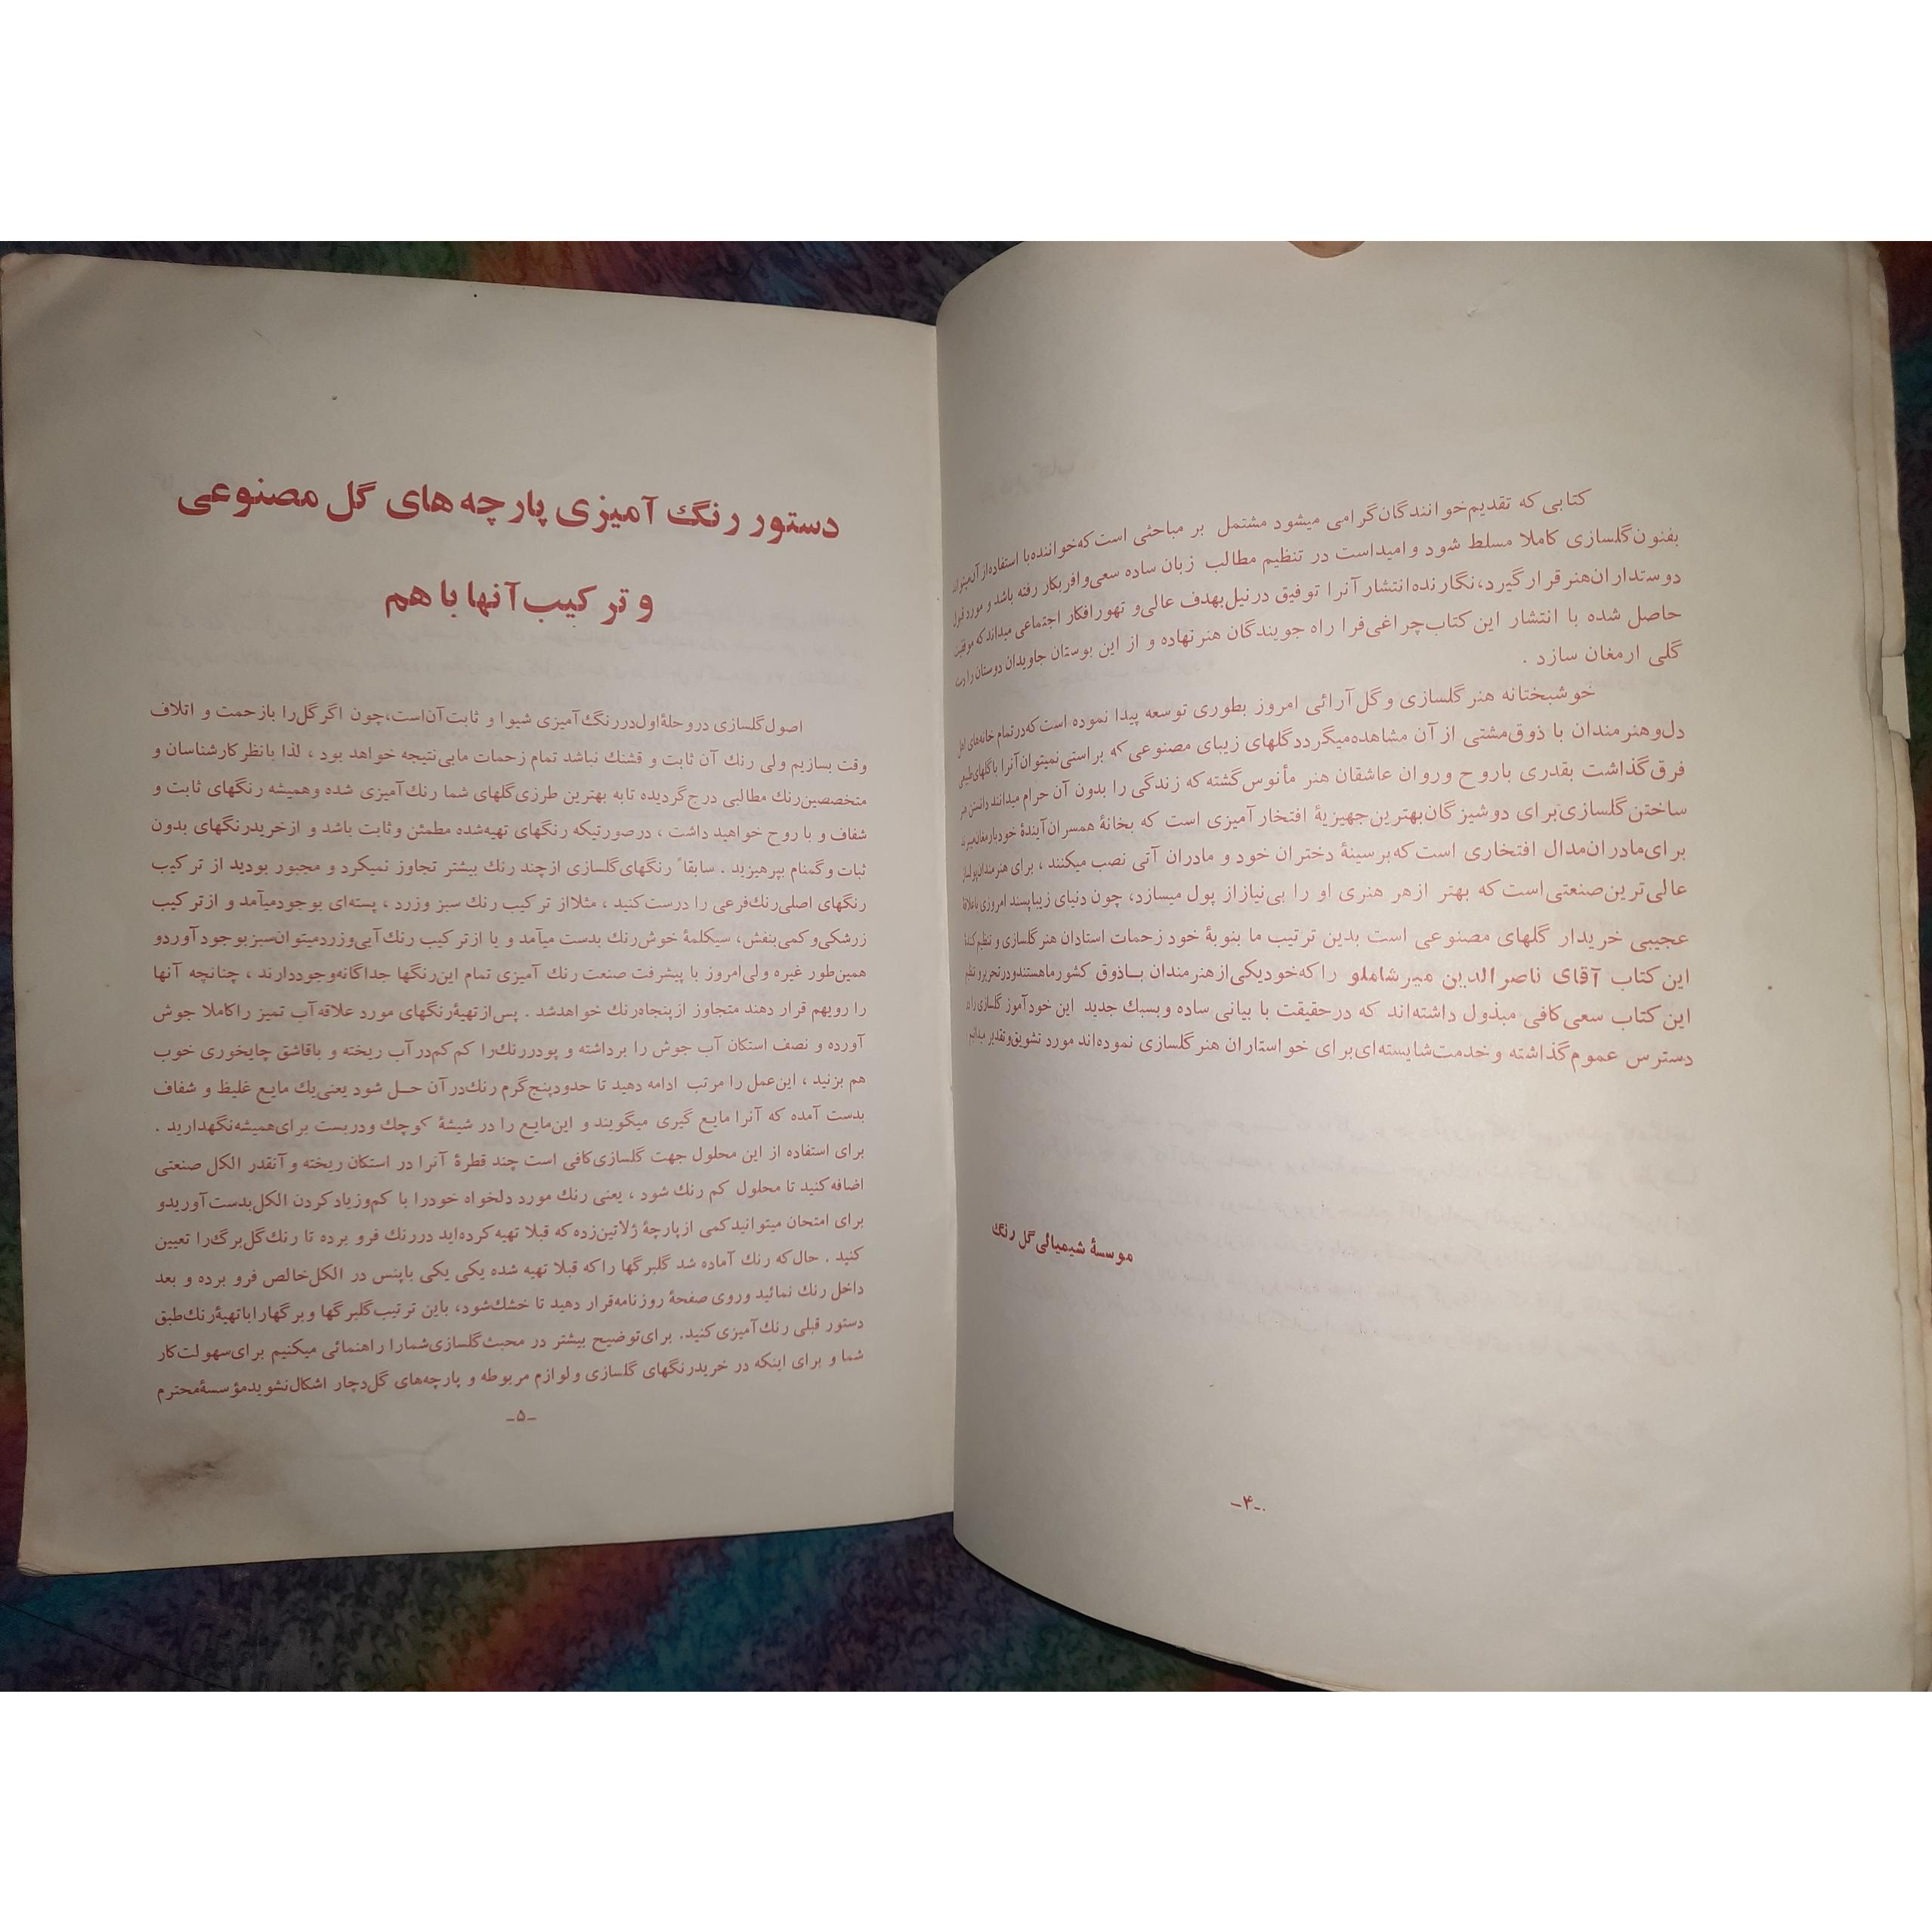 کتابی که تقدیم خوانندگان گرامی میشود مشتمل بر مباحثی است که خواننده با استفاده از آن میتواند
بفنون گلسازی کاملا مسلط شود و امیداست در تنظیم مطالب زبان ساده سعی وافر بکار رفته باشد و مورد قبول
دوستداران هنر قرار گیرد، نگارنده انتشار آنرا توفیق در نیل بهدف عالی و تهور افکار اجتماعی میداند که موفقیت
حاصل شده با انتشار این کتاب چراغی فرا راه جویندگان هنر نهاده و از این بوستان جاویدان دوستان را دست
گلی ارمغان سازد .
خوشبختانه هنر گلسازی و گل آرائی امروز بطوری توسعه پیدا نموده است که در تمام خانه های اهل
دل و هنرمندان با ذوق مشتی از آن مشاهده میگردد گلهای زیبای مصنوعی که براستی نمیتوان آنرا با گلهای طبیعی
فرق گذاشت بقدری باروح و روان عاشقان هنر مأنوس گشته که زندگی را بدون آن حرام میدانند دانستن هنر
ساختن گلسازی برای دوشیزگان بهترین جهیزیهٔ افتخار آمیزی است که بخانهٔ همسران آیندهٔ خود بارمغان میبرند
برای مادران مدال افتخاری است که بر سینهٔ دختران خود و مادران آتی نصب میکنند ، برای هنرمندان
عالی ترین صنعتی است که بهتر از هر هنری او را بی نیاز از پول میسازد، چون دنیای زیبا پسند امروزی با علاقهٔ
عجیبی خریدار گلهای مصنوعی است بدین ترتیب ما بنوبهٔ خود زحمات استادان هنر گلسازی و تنظیم کنندهٔ
این کتاب آقای ناصرالدین میرشاملو را که خود یکی از هنرمندان بـاذوق کشور ما هستند و در تحریر و تنظیم
این کتاب سعی کافی مبذول داشته اند که در حقیقت با بیانی ساده و بسبك جدید این خود آموز گلسازی را در
دسترس عموم گذاشته و خدمت شایسته ای برای خواستاران هنر گلسازی نموده اند مورد تشویق و تقدیر میدانیم
موسسهٔ شیمیائی گل رنگ
-۴-
دستور رنگ آمیزی پارچه های گل مصنوعی
و ترکیب آنها با هم
اصول گلسازی در وحلهٔ اول در رنگ آمیزی شیوا و ثابت آن است، چون اگر گل را با زحمت و اتلاف
وقت بسازیم ولی رنك آن ثابت و قشنك نباشد تمام زحمات ما بی نتیجه خواهد بود ، لذا با نظر کارشناسان و
متخصصین رنك مطالبی درج گردیده تا به بهترین طرزی گلهای شما رنك آمیزی شده و همیشه رنگهای ثابت و
شفاف و با روح خواهید داشت ، در صورتیکه رنگهای تهیه شده مطمئن و ثابت باشد و از خرید رنگهای بدون
ثبات و گمنام بپرهیزید . سابقاً رنگهای گلسازی از چند رنك بیشتر تجاوز نمیکرد و مجبور بودید از ترکیب
رنگهای اصلی رنك فرعی را درست کنید ، مثلا از ترکیب رنك سبز و زرد ، پسته ای بوجود میآمد و از ترکیب
زرشکی و کمی بنفش، سیکلمهٔ خوش رنك بدست میآمد و یا از ترکیب رنك آبی و زرد میتوان سبز بوجود آورد و
همین طور غیره ولی امروز با پیشرفت صنعت رنك آمیزی تمام این رنگها جداگانه وجود دارند ، چنانچه آنها
را رویهم قرار دهند متجاوز از پنجاه رنك خواهد شد . پس از تهیهٔ رنگهای مورد علاقه آب تمیز را کاملا جوش
آورده و نصف استکان آب جوش را برداشته و پودر رنك را کم کم در آب ریخته و با قاشق چایخوری خوب
هم بزنید ، این عمل را مرتب ادامه دهید تا حدود پنج گرم رنك در آن حـل شود یعنی یك مایع غلیظ و شفاف
بدست آمده که آنرا مایع گیری میگویند و این مایع را در شیشهٔ کوچك و در بست برای همیشه نگهدارید .
برای استفاده از این محلول جهت گلسازی کافی است چند قطرهٔ آنرا در استکان ریخته و آنقدر الکل صنعتی
اضافه کنید تا محلول کم رنك شود ، یعنی رنك مورد دلخواه خود را با کم و زیاد کردن الکل بدست آورید و
برای امتحان میتوانید کمی از پارچهٔ ژلاتین زده که قبلا تهیه کرده اید در رنك فرو برده تا رنك گل برگ را تعیین
کنید . حال که رنك آماده شد گلبرگها را که قبلا تهیه شده یکی یکی با پنس در الکل خالص فرو برده و بعد
داخل رنك نمائید و روی صفحهٔ روزنامه قرار دهید تا خشك شود، باین ترتیب گلبرگها و برگها را با تهیهٔ رنك طبق
دستور قبلی رنك آمیزی کنید. برای توضیح بیشتر در محبث گلسازی شما را راهنمائی میکنیم برای سهولت کار
شما و برای اینکه در خرید رنگهای گلسازی و لوازم مربوطه و پارچه های گل دچار اشکال نشوید مؤسسهٔ محترم
-۵-